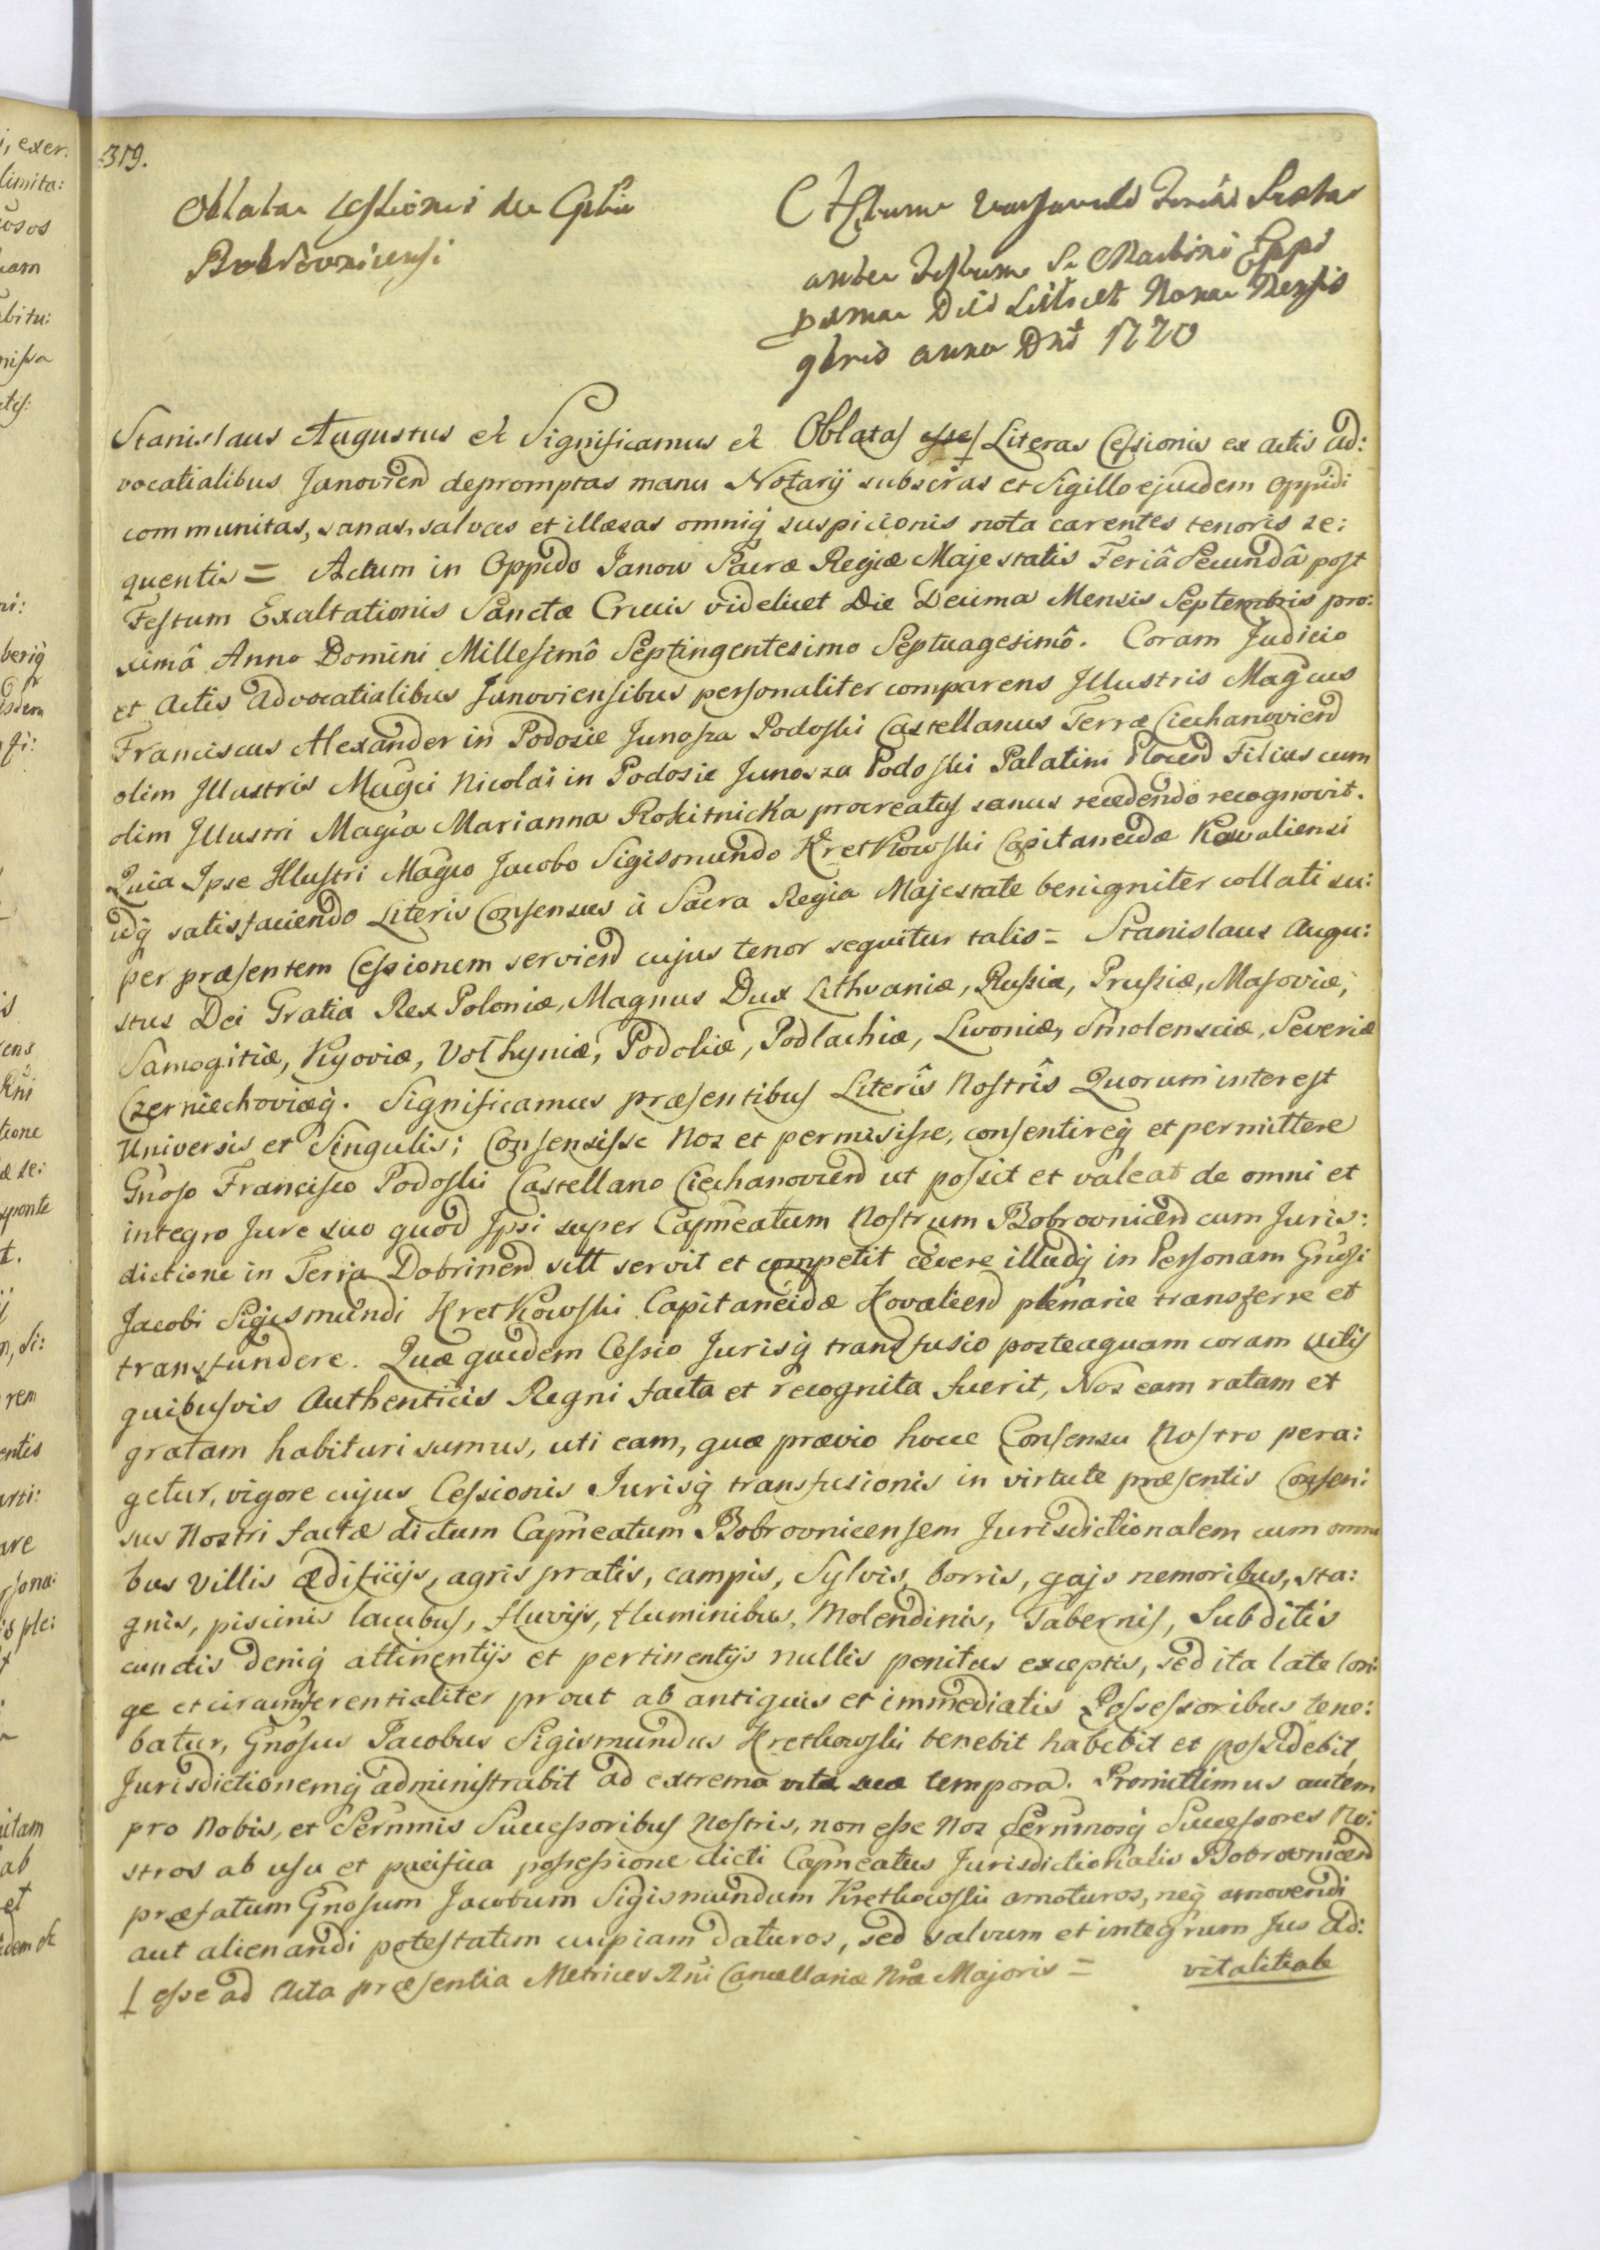 319.
Oblata Cessionis de Cptu
Bobrovnicensi
Actum Varsaviæ Feria Sexta
ante Festum S. Martini Eppi
Die Scilicet Nona Mensis
9bris anno Dni 1770
Stanislaus Augustus et Significamus et Oblatas esse Literas Cessionis ex actis ad:
vocatialibus Janovien depromptas manu Notarij subscras et Sigillo ejusdem Oppidi
communitas, sanas, salvas et illæsas omniq suspicionis nota carentes tenoris se:
quentis = Actum in Oppido Janow Sacræ Regiæ Majestatis Feriâ Secundâ post
Festum Exaltationis Sanctæ Crucis videlicet Die Decima Mensis Septembris pro:
ximâ Anno Domini Millesimô Septingentesimo Septuagesimô. Coram Judicio
et Actis Advocatialibus Janoviensibus personaliter comparens Illustris Magcus
Franciscus Alexander in Podosie Junosza Podoski Castellanus Terræ Ciechanovien
olim Illustris Magci Nicolai in Podosie Junosza Podoski Palatini Plocen Filius cum
olim Illustri Magca Marianna Rokitnicka procreatus sanus recedendo recognovit.
Quia Ipse Illustri Magco Jacobo Sigismundo Kretkowski Capitaneidæ Kowaliensi
idq satisfaciendo Literis Consensus à Sacra Regia Majestate benigniter collati su:
per præsentem Cessionem servien cujus tenor sequitur talis = Stanislaus Augu:
stus Dei Gratia Rex Poloniæ, Magnus Dux Lithvaniæ, Russiæ, Prussiæ, Masoviæ,
Samogitiæ, Kyoviæ, Volhyniæ, Podoliæ, Podlachiæ, Livoniæ, Smolensciæ, Severiæ
Czerniechoviæq. Significamus præsentibus Literîs Nostrîs Quorum interest
Universis et Singulis; Consensisse Nos et permisisse, consentireq et permittere
Gnoso Francisco Podoski Castellano Ciechanovien ut possit et valeat de omni et
integro Jure suo quod Ipsi super Capneatum Nostrum Bobrovnicen cum Juris:
dictione in Terra Dobrinen sitt servit et competit cedere illudq in Personam Gnosi
Jacobi Sigismundi Kretkowski Capitaneidæ Kovalien plenarie transferre et
transfundere. Quæ quidem Cessio Jurisq transfusio posteaquam coram Actis
quibusvis Authenticis Regni facta et recognita fuerit, Nos eam ratam et
gratam habituri sumus, uti eam, quæ prævio hocce Consensu Nostro pera:
getur, vigore cujus Cessionis Jurisq transfusionis in virtute præsentis Consen:
sus Nostri factæ dictum Capneatum Bobrovnicensem Jurisdictionalem cum omni
bus Villis ædificijs, agris pratis, campis, Sylvis, borris, gajs nemoribus, sta:
gnis, piscinis lacubus, fluvijs, fluminibus, Molendinis, Tabernis, Subditis
cunctis deniq attinentijs et pertinentijs nullis penitus exceptis, sed ita late lon:
ge et circumferentialiter prout ab antiquis et immediatis Possessoribus tene:
batur, Gnosus Jacobus Sigismundus Kretkowski tenebit habebit et possidebit,
Jurisdictionemq administrabit ad extrema vitæ suæ tempora. Promittimus autem
pro Nobis, et Sernmis Successoribus Nostris, non esse Nos Sernmosq Successores No:
stros ab usu et pacifica possessione dicti Capneatus Jurisdictionalis Bobrovnicen
præfatum Gnosum Jacobum Sigismundum Kretkowski amoturos, neq amovendi
aut alienandi potestatem cuipiam daturos, sed salvum et integrum Jus Ad:
esse ad Acta præsentia Metrices Rni Cancellariæ Nræ Majoris =
vitalitiale